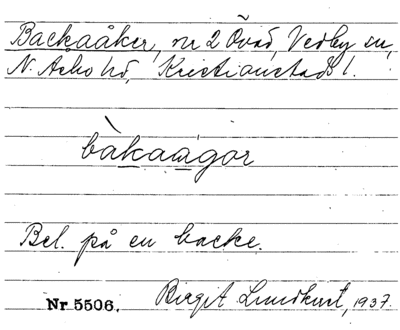 Backaåker, nr 2 Övad, Vedby sn,
N. Åsbo hd, Kristianstads l.
bàkaågor
Bel. på en backe.
Nr 5506. Birgit Lundkvist, 1937.